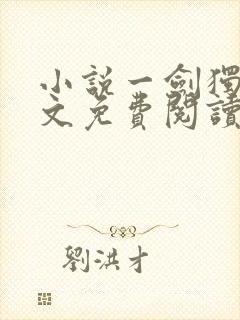 小説一劍獨
文免費閱讀
劉洪才